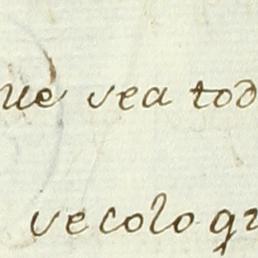 ue sea tod
vecolo gr